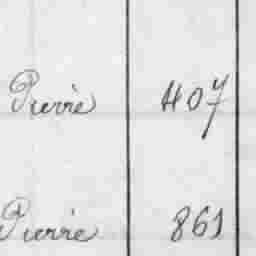 Pierre 407
Pierre 861